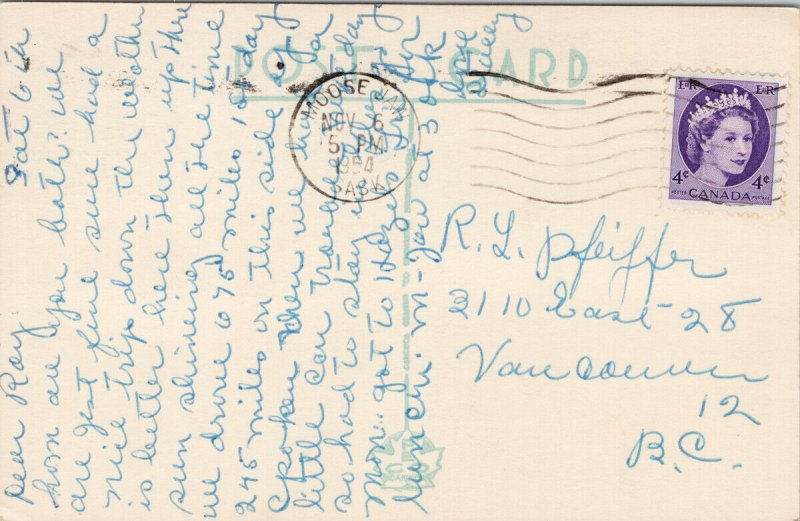 Dear Roy. Sat 6th
how are you both? we
are jest fine sure had a
nice trip down the weather
is better here then up there
sun shining all the time
we drove 675 miles 1st day
245 miles on this side of
Spoken then we have
little car trouble day
so had to stay in
Mon.. got to Hazels for
lunch in M-Jaw at 3 oclk
Love
POST CARD
MOOSE JAW
NOV 6
5 PM
1954
SASK
EIIR EIIR
4¢ 4¢
CANADA
POSTES POSTAGE
R. L. Pfeiffer
2110 East-28
Vancouver
12
B.C.